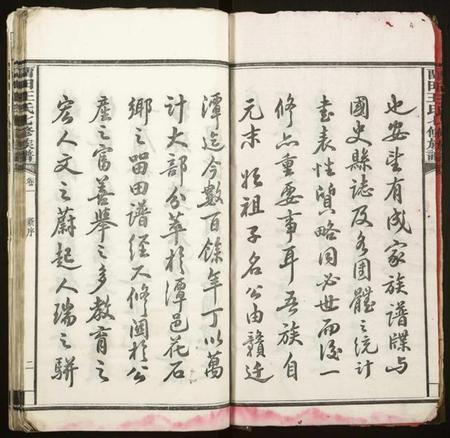 也安望有成家族譜牒與
國史縣誌及各團體之統計
書表性質略同必世而後一
修亦重要事耳吾族自
元末 始祖子名公由贛遷
潭迄今數百餘年丁以萬
計大部分萃於潭邑花石
鄉之留田譜經六修關於公
產之富善舉之多教育之
宏人文之蔚起人瑞之駢
田王氏七修族譜
卷一
序
二